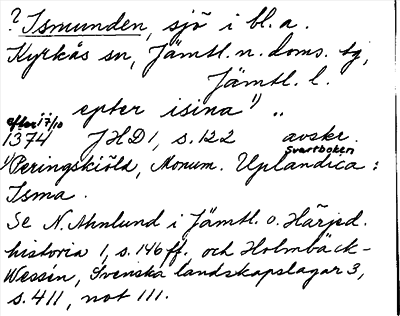 ? Ismunden, sjö i bl. a.
Kyrkås sn, Jämtl. n. doms. tg,
Jämtl. l.
epter isina 1) „
efter 17/10
1374 JHD 1, s. 122 avskr.
Svartboken
1) Peringskiöld, Monum. Uplandica:
Isma.
Se N. Ahnlund i Jämtl. o. Härjed.
historia 1, s. 146 ff. och Holmbäck-
Wessén, Svenska landskapslagar 3,
s. 411, not 111.